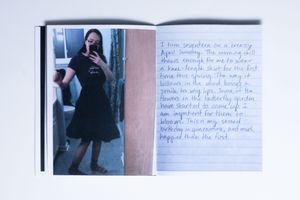 I turn seventeen on a breezy
April Sunday. The morning sun
shines enough for me to wear
a knee-length skirt for the first
time this spring. The way it
billows in the wind brings a
smile to my lips. Some of the
flowers in the butterfly garden
have started to come up. I
am impatient for them to
bloom. This is my second
birthday in quarantine, and much
happier than the first.